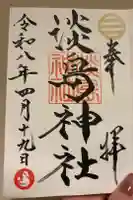 奉拝
淡島神社
令和八年四月十九日